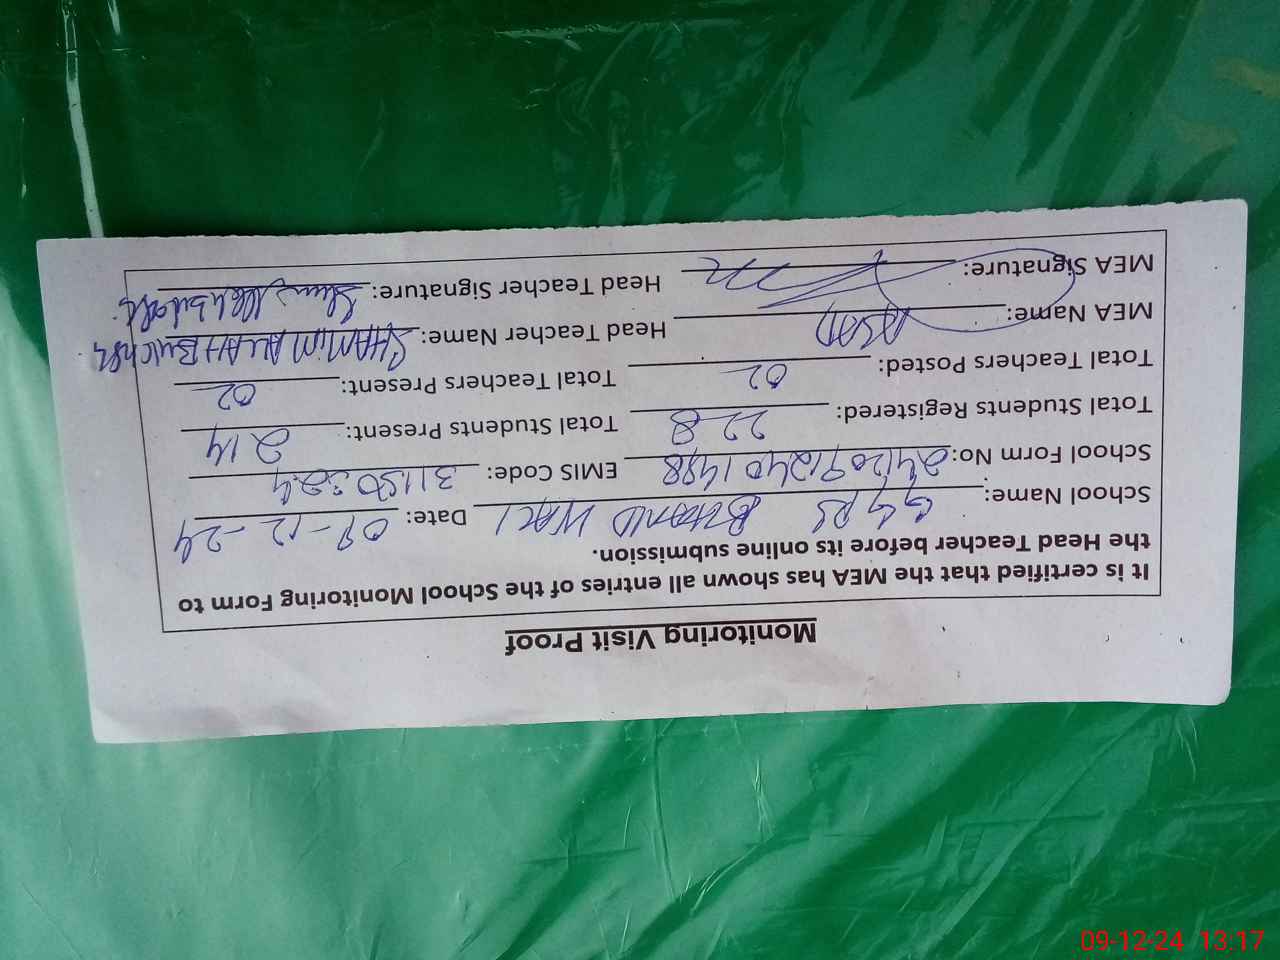 Monitoring Visit Proof
It is certified that the MEA has shown all entries of the School Monitoring Form to
the Head Teacher before its online submission.
School Name: GGPS BHAND WALI Date: 09-12-24
School Form No: EMIS Code:
Total Students Registered: 228 Total Students Present: 214
Total Teachers Posted: 02 Total Teachers Present: 02
MEA Name: ASAD Head Teacher Name: SHAMIM ALLAH
MEA Signature: Head Teacher Signature:
09-12-24 13:17